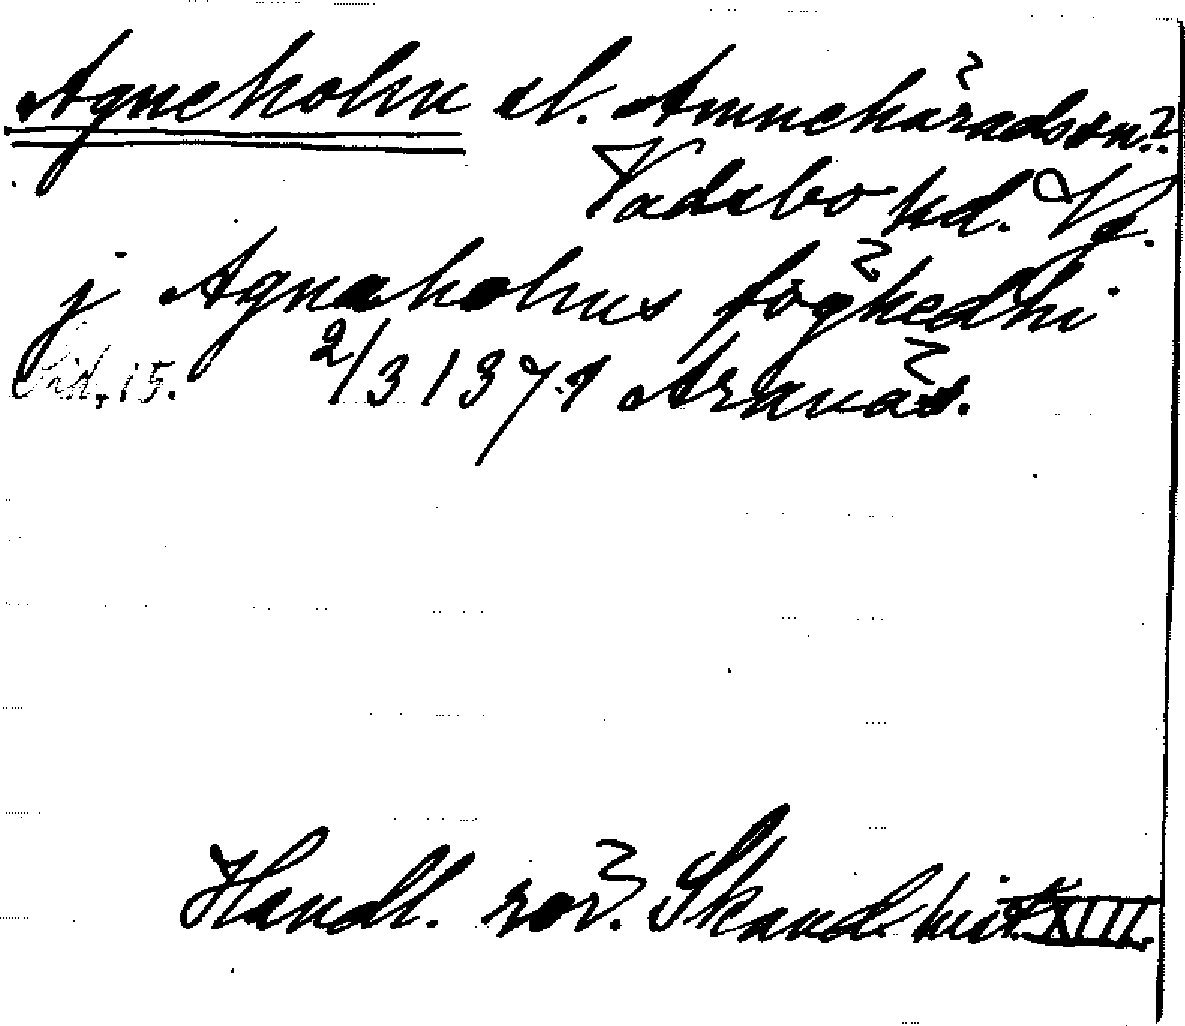 Agneholm el. Amnehärads sn??
Vadsbo hd. Vg.
j Agnaholms föghedhi
Sid. 15. 2/3 1371 Aranäs.
Handl. rör. Skand. hist. XIII.